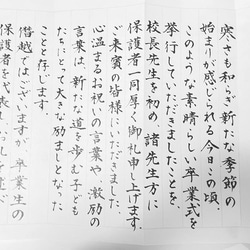 寒さも和らぎ新たな季節の
始まりが感じられる今日の頃、
このような素晴らしい卒業式を
挙行していただきましたことを、
校長先生を初め諸先生方に
保護者一同厚く御礼申し上げます。
ご来賓の皆様にいただきました、
心温まるお祝いの言葉や激励の
言葉は、新たな道を歩む子ども
たちにとって大きな励ましとなった
ことと存じます。
僭越ではございますが、卒業生の
保護者を代表